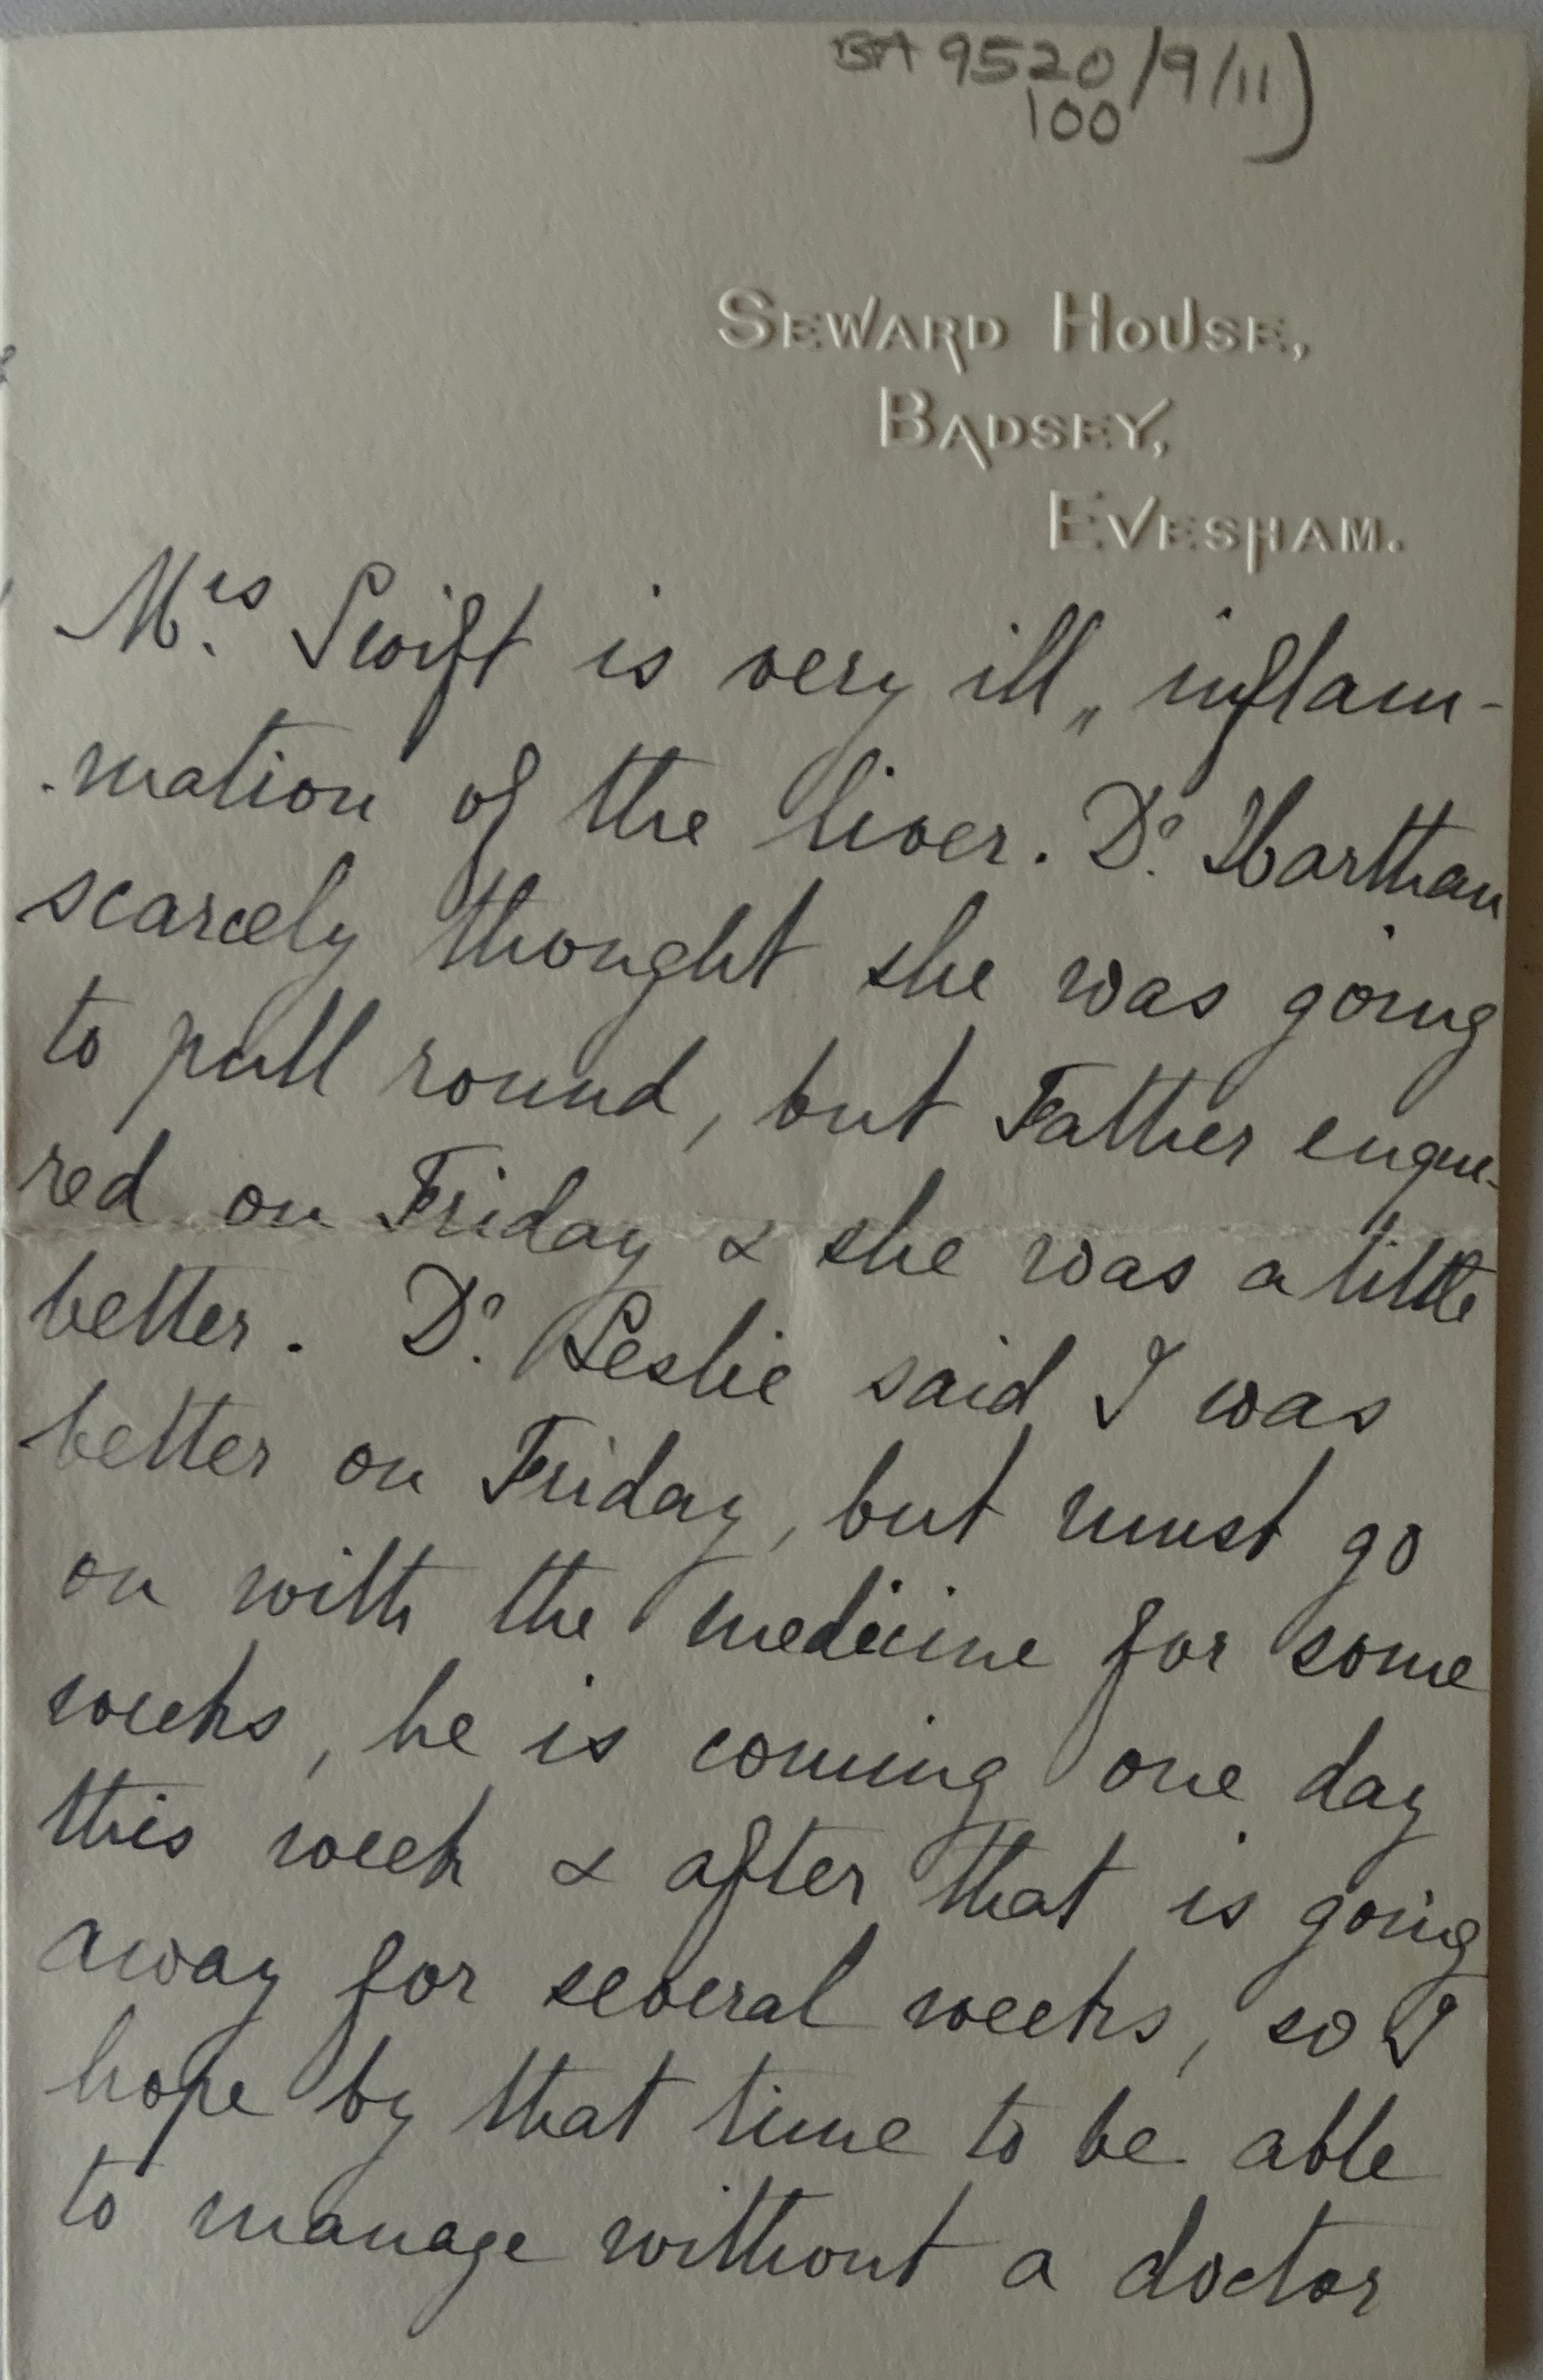 BA 9520/9/11)
100
SEWARD HOUSE,
BADSEY,
EVESHAM.
Mrs. Swift is very ill,, inflam-
-mation of the liver. Dr. Harthan
scarcely thought she was going
to pull round, but Father enque-
red on Friday & she was a little
better. Dr. Leslie said I was
better on Friday, but must go
on with the medicine for some
weeks, he is coming one day
this week & after that is going
away for several weeks, so I
hope by that time to be able
to manage without a doctor